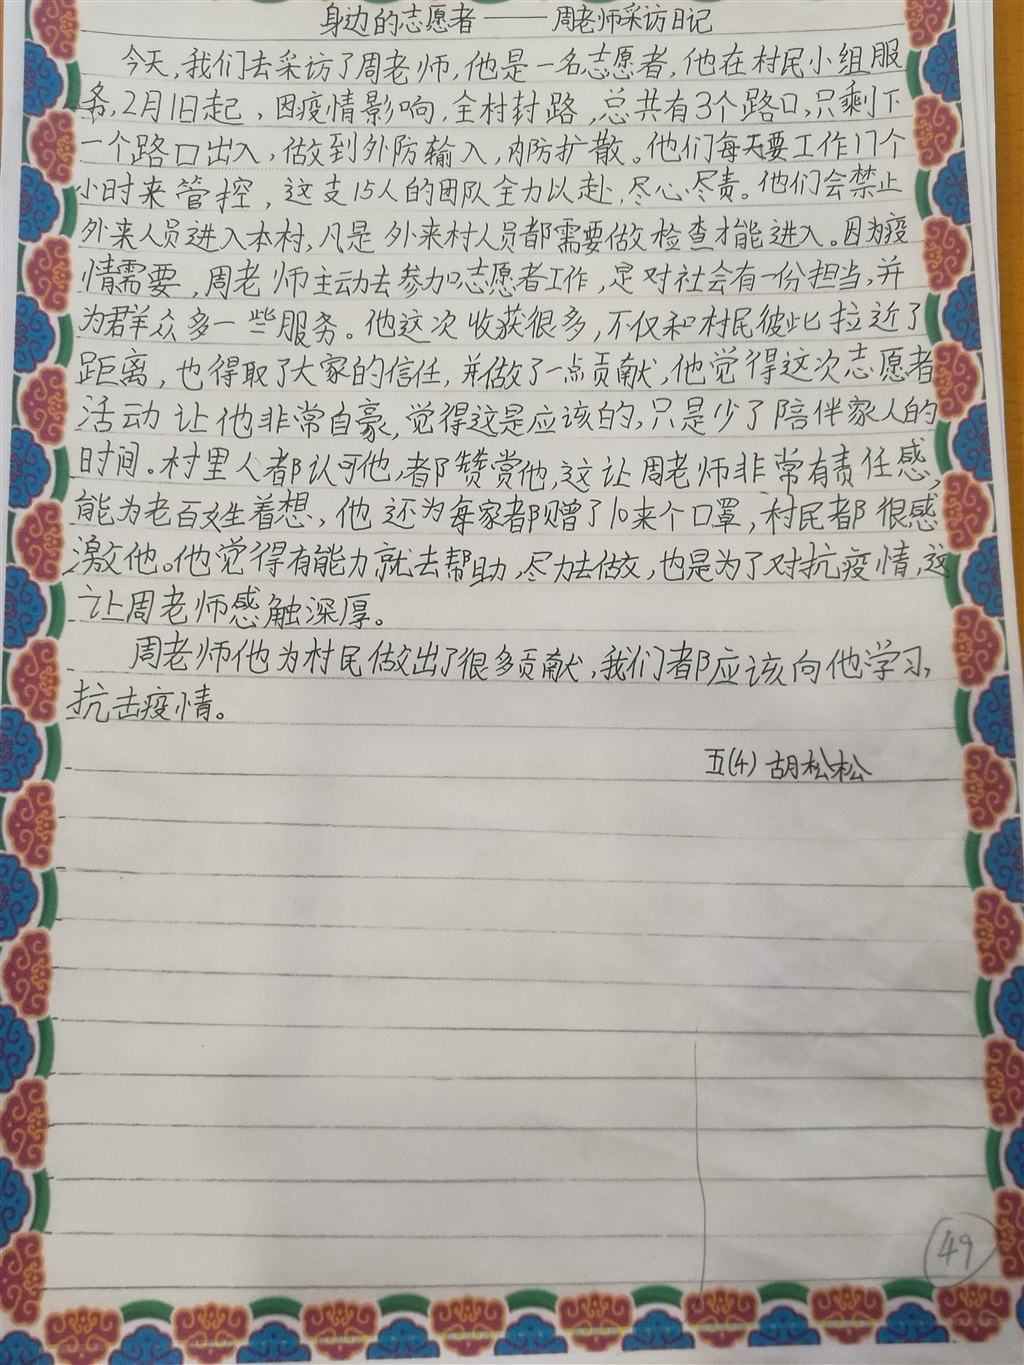 身边的志愿者——周老师采访日记
今天,我们去采访了周老师,他是一名志愿者,他在村民小组服
务,2月1日起,因疫情影响,全村封路,总共有3个路口,只剩下
一个路口出入,做到外防输入,内防扩散。他们每天要工作17个
小时来管控,这支15人的团队全力以赴,尽心尽责。他们会禁止
外来人员进入本村,凡是外来村人员都需要做检查才能进入。因为疫
情需要,周老师主动去参加志愿者工作,是对社会有一份担当,并
为群众多一些服务。他这次收获很多,不仅和村民彼此拉近了
距离,也得取了大家的信任,并做了一点贡献,他觉得这次志愿者
活动让他非常自豪,觉得这是应该的,只是少了陪伴家人的
时间。村里人都认可他,都赞赏他,这让周老师非常有责任感,
能为老百姓着想,他还为每家都赠了10来个口罩,村民都很感
激他。他觉得有能力就去帮助,尽力去做,也是为了对抗疫情,这
让周老师感触深厚。
周老师他为村民做出了很多贡献,我们都应该向他学习,
抗击疫情。
五(4)胡松松
49